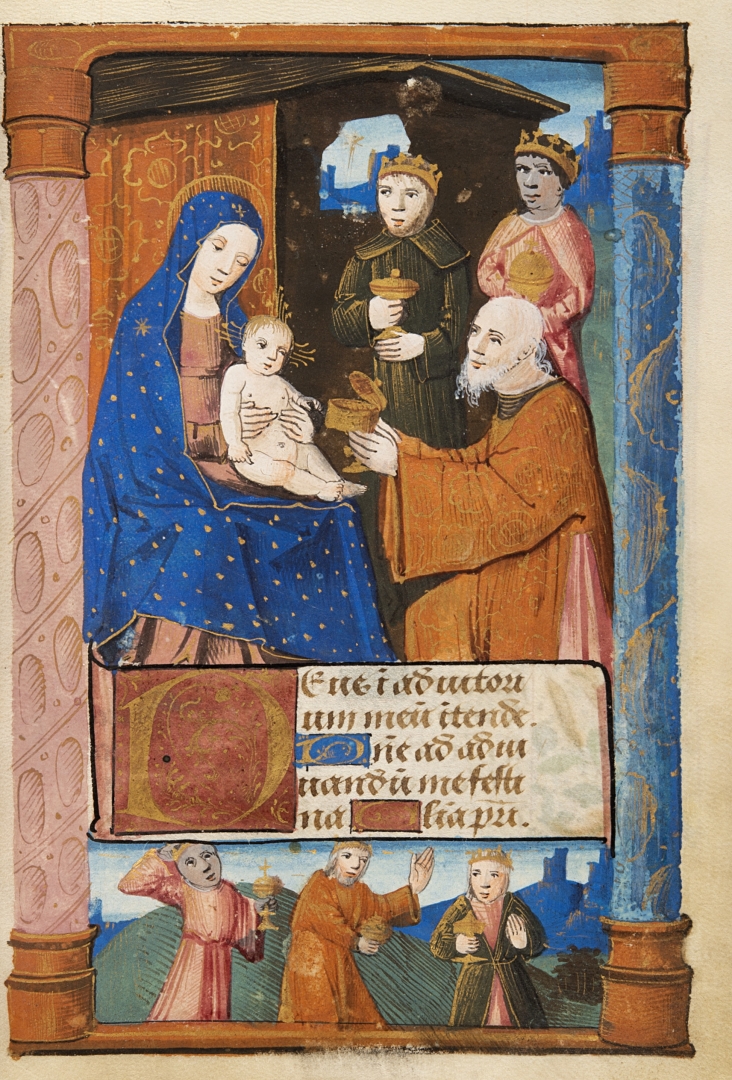 Deus ĩ adiutori
um meũ ĩtende.
Dñe ad adiu
uandũ me festi
na Glia pr̃i.